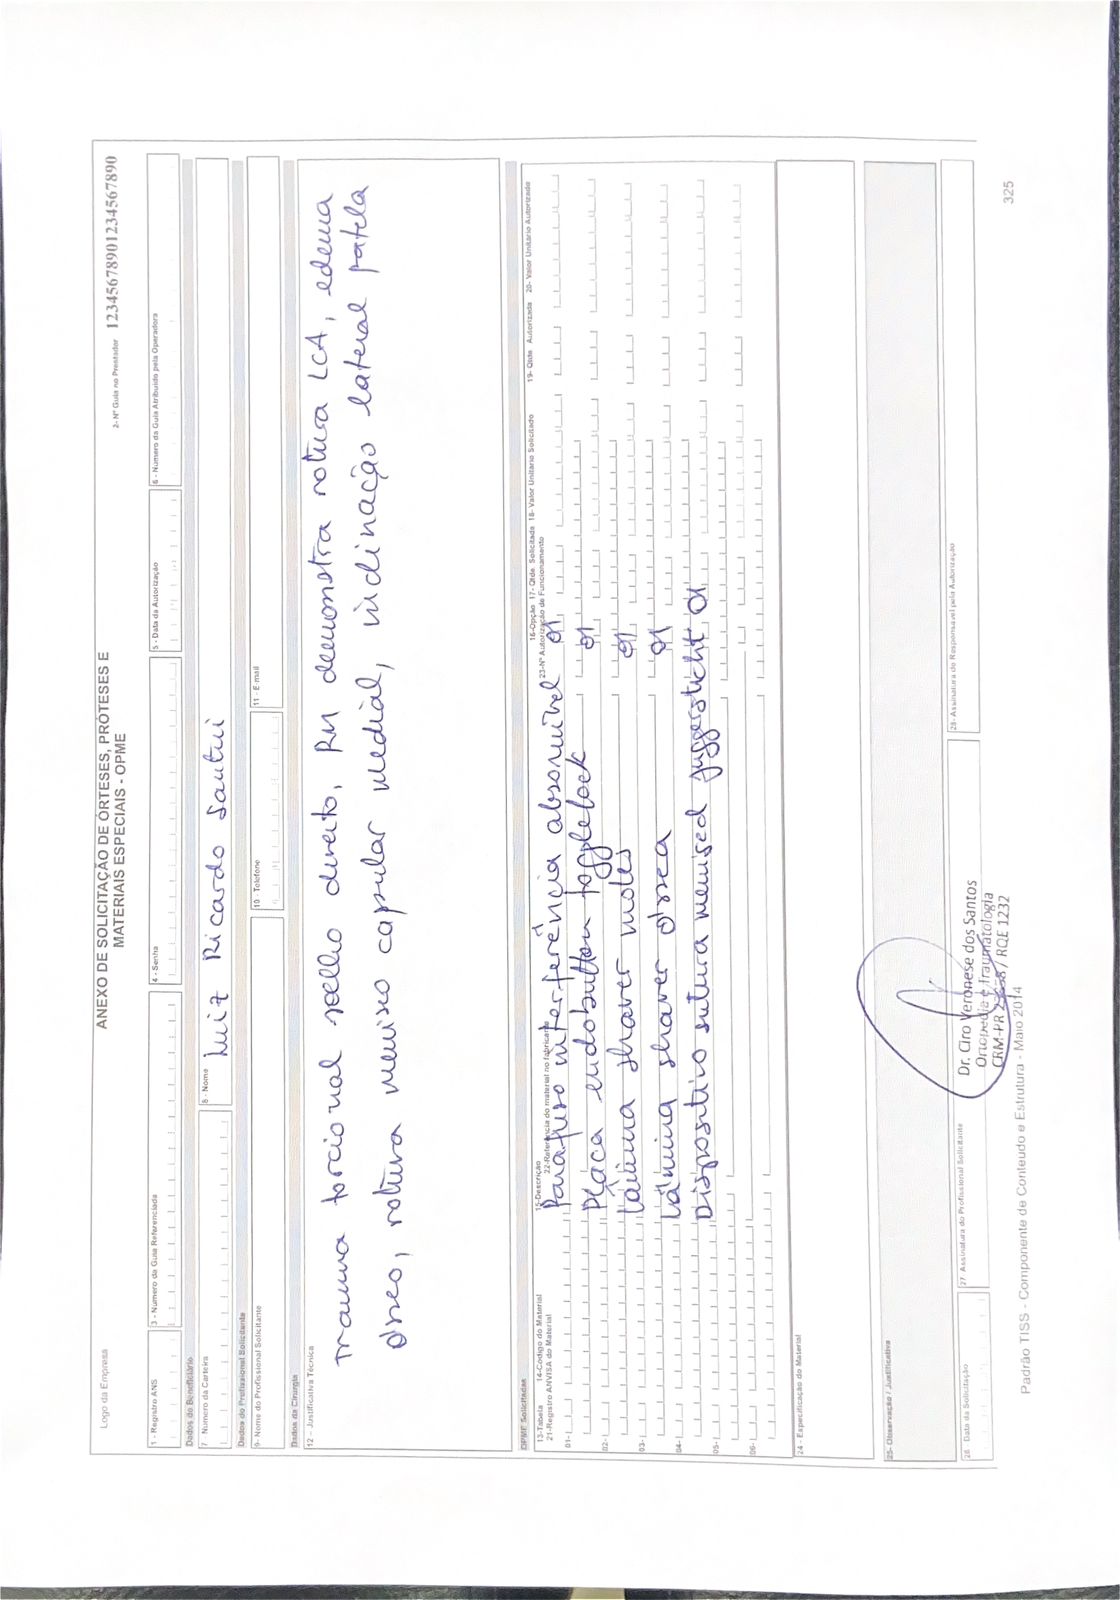 Logo da Empresa
ANEXO DE SOLICITAÇÃO DE ÓRTESES, PRÓTESES E
MATERIAIS ESPECIAIS - OPME
2- Nº Guia no Prestador 12345678901234567890
1 - Registro ANS
3 - Número da Guia Referenciada
4 - Senha
5 - Data da Autorização
6 - Número da Guia Atribuído pela Operadora
Dados do Beneficiário
7 Número da Carteira
8 - Nome
Luiz Ricardo Santini
Dados do Profissional Solicitante
9- Nome do Profissional Solicitante
10 - Telefone
11 - E-mail
Dados da Cirurgia
12 - Justificativa Técnica
Trauma torcional joelho direito, RM demonstra rotura LCA, edema
ósseo, rotura menisco capsular medial, inclinação lateral patela
OPME Solicitadas
13-Tabela 14-Código do Material 15-Descrição 16-Opção 17- Qtde. Solicitada 18- Valor Unitário Solicitado 19- Qtde. Autorizada 20- Valor Unitário Autorizado
21-Registro ANVISA do Material 22-Referência do material no fabricante 23-Nº Autorização de Funcionamento
01- Parafuso interferência absorvível 01
02- Placa endobutton togglelock 01
03- Lâmina shaver moles 01
04- Lâmina shaver óssea 01
05- Dispositivo sutura menised juggerstitch 01
06-
24 - Especificação do Material
25- Observação / Justificativa
26 - Data da Solicitação
27 Assinatura do Profissional Solicitante
28- Assinatura do Responsável pela Autorização
Dr. Ciro Veronese dos Santos
Ortopedia e Traumatologia
CRM-PR / RQE 1232
Padrão TISS - Componente de Conteúdo e Estrutura - Maio 2014
325